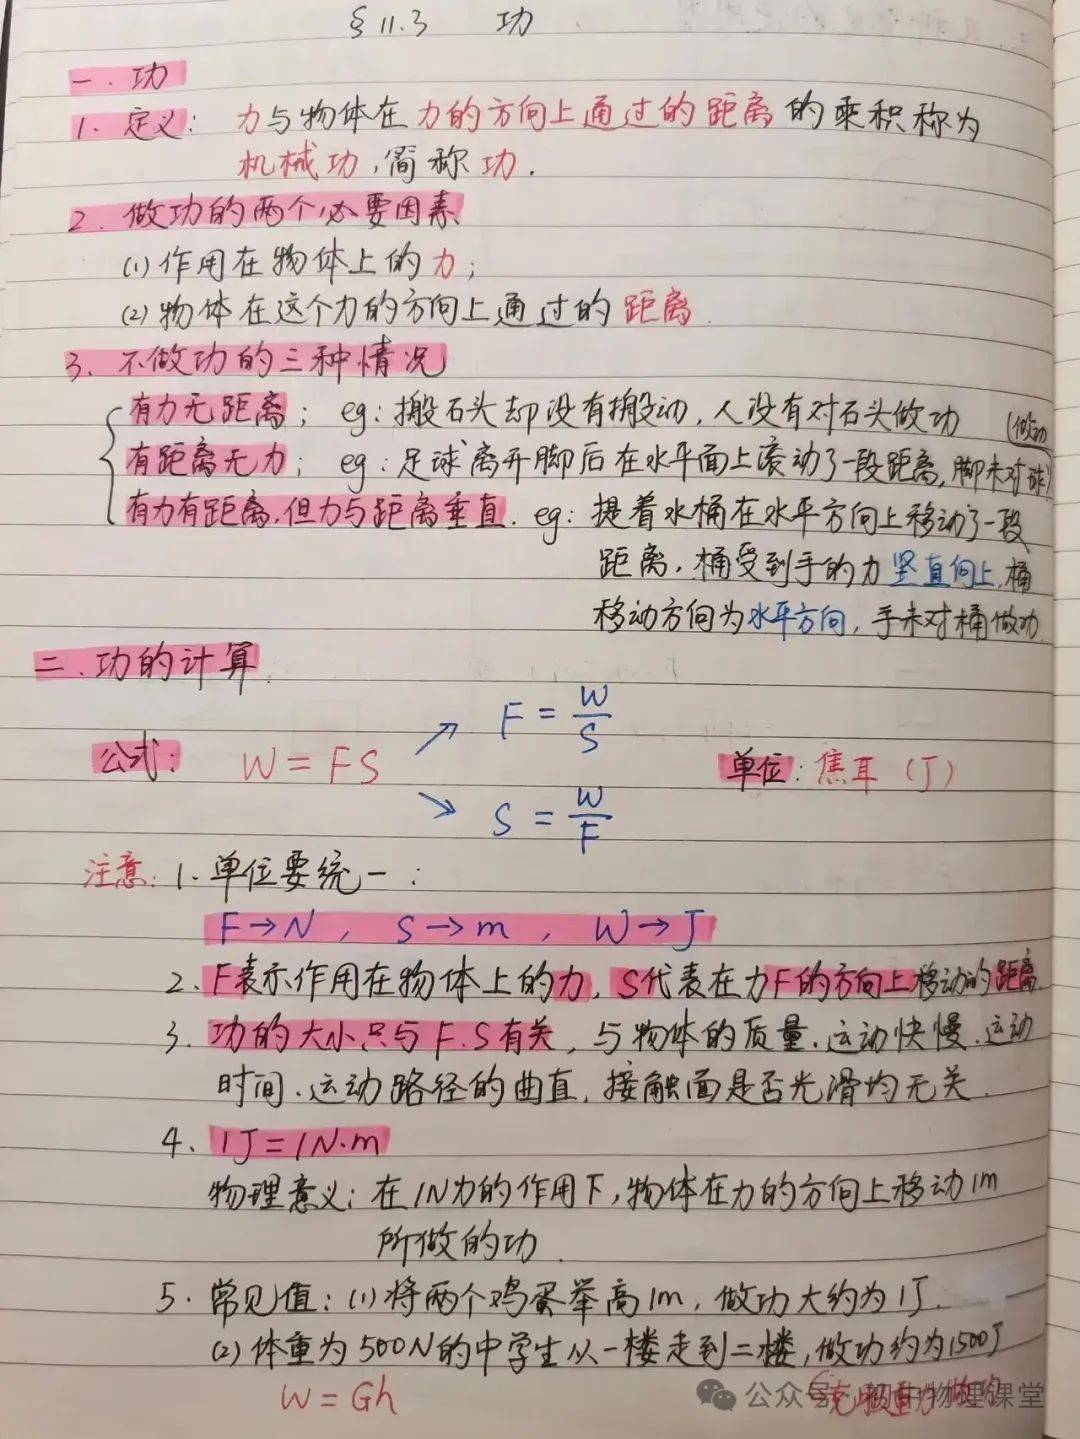 §11.3 功
一.功
1.定义:力与物体在力的方向上通过的距离的乘积称为
机械功,简称功.
2.做功的两个必要因素
(1)作用在物体上的力;
(2)物体在这个力的方向上通过的距离.
3.不做功的三种情况
有力无距离; eg:搬石头却没有搬动,人没有对石头做功
有距离无力; eg:足球离开脚后在水平面上滚动了一段距离,脚未对球(做功)
有力有距离,但力与距离垂直. eg:提着水桶在水平方向上移动了一段
距离,桶受到手的力竖直向上,桶
移动方向为水平方向,手未对桶做功.
二.功的计算
F=W/S
公式: W=FS 单位:焦耳(J)
S=W/F
注意:1.单位要统一:
F→N, S→m, W→J
2.F表示作用在物体上的力,S代表在力F的方向上移动的距离.
3.功的大小只与F.S有关,与物体的质量.运动快慢.运动
时间.运动路径的曲直,接触面是否光滑均无关.
4.1J=1N·m
物理意义:在1N力的作用下,物体在力的方向上移动1m
所做的功.
5.常见值:(1)将两个鸡蛋举高1m,做功大约为1J.
(2)体重为500N的中学生从一楼走到二楼,做功约为1500J
W=Gh
公众号 物理课堂